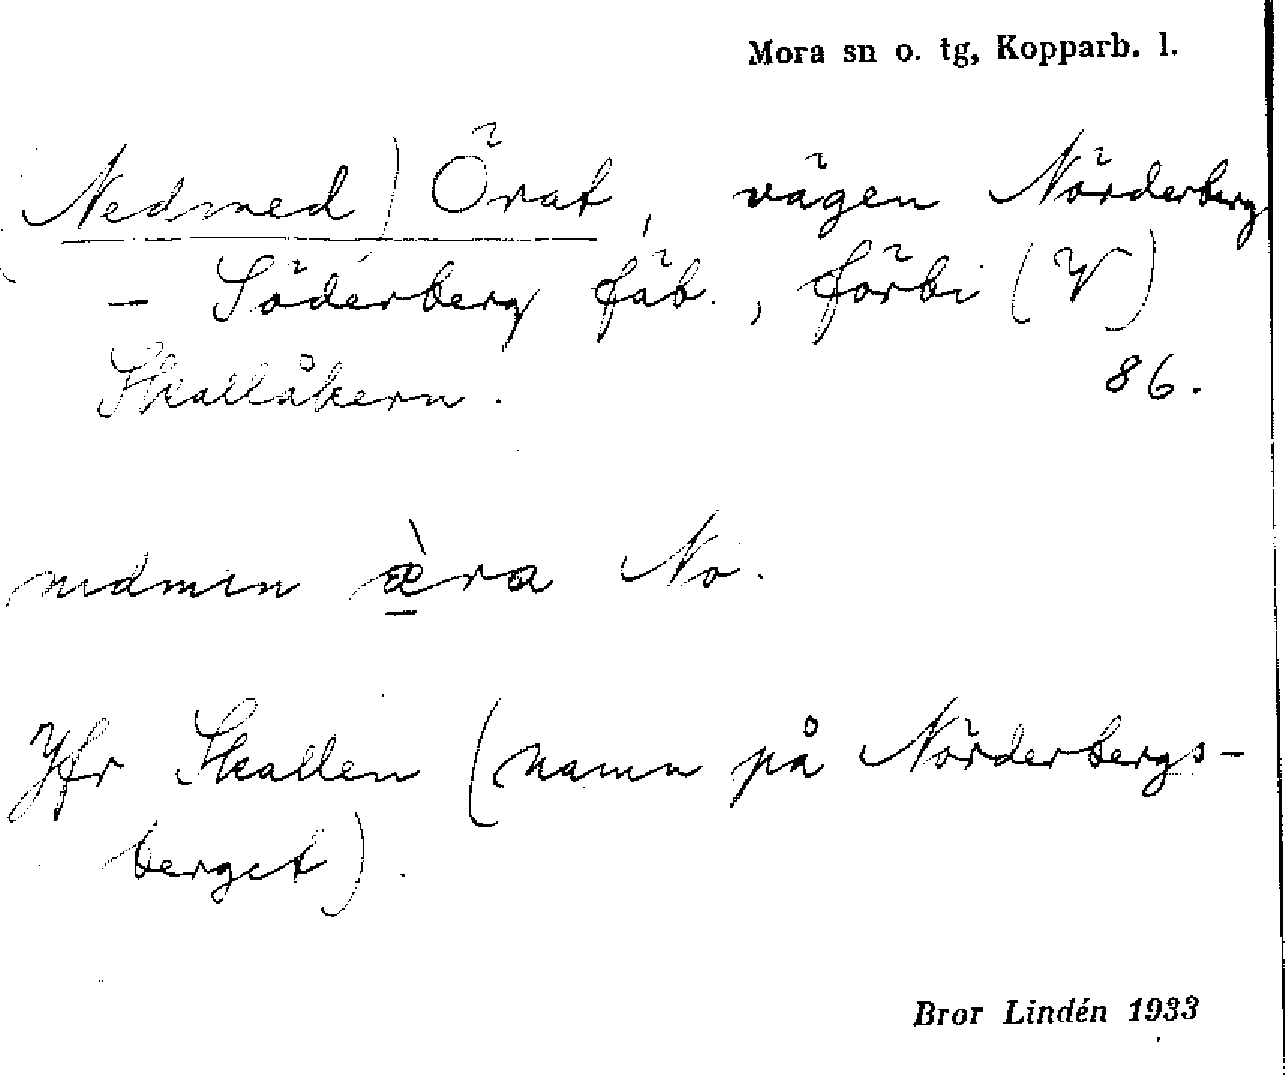 Mora sn o. tg, Kopparb. l.
Nedmed) Örat, vägen Nörderberg
- Söderberg fäb., förbi (V)
Skallåkern. 86.
nedmen æ̀ra No.
Jfr Skallen (namn på Nörderbergs-
berget).
Bror Lindén 1933